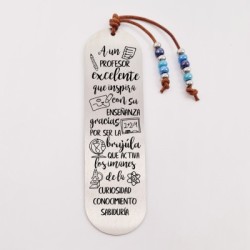 A un
PROFESOR
excelente
que inspira
con su
ENSEÑANZA
gracias
POR SER LA
brújula
QUE ACTIVA
los imanes
de la
CURIOSIDAD
CONOCIMIENTO
SABIDURÍA